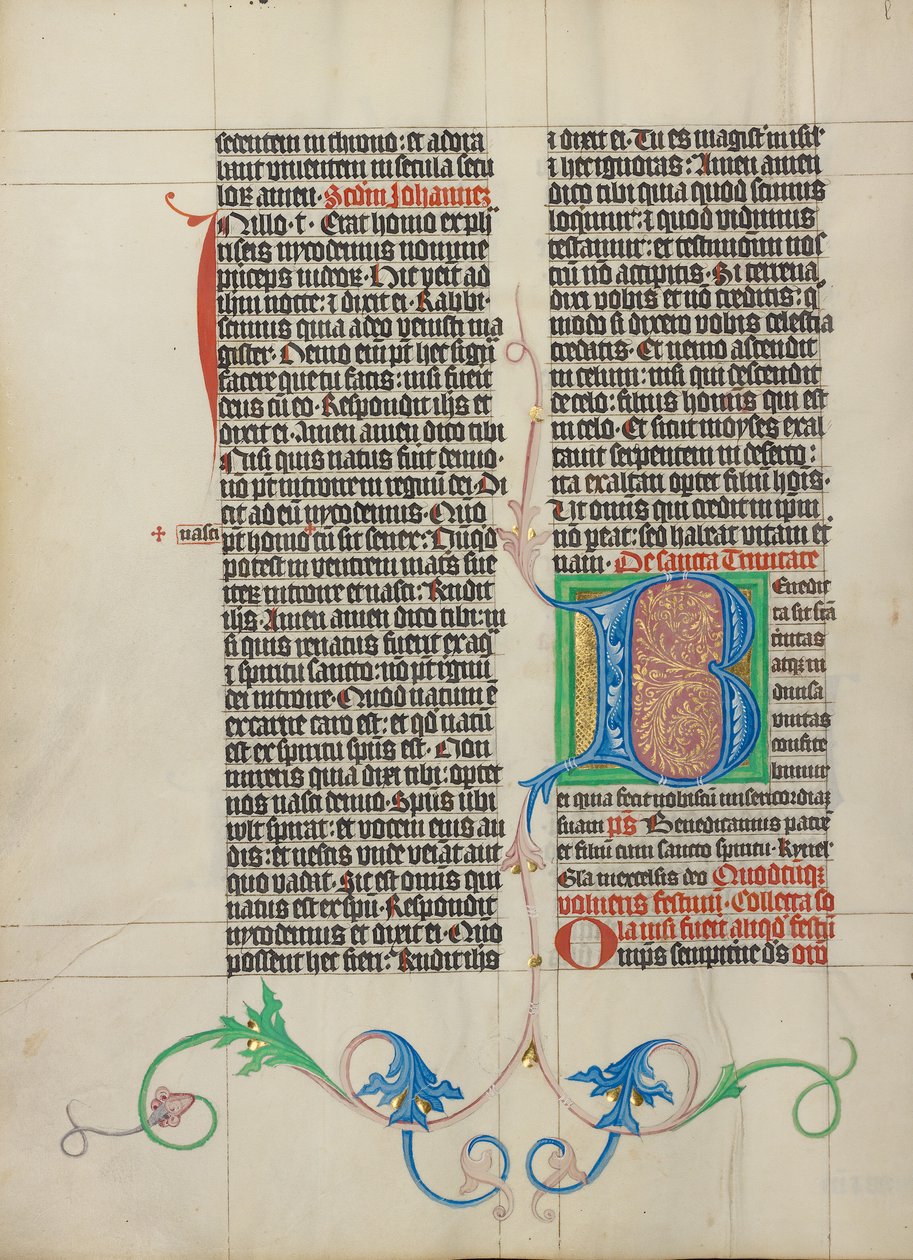 sedentem in throno: et adora
bunt viventem in secula secu
loꝝ amen. Scdm Johannez
In illo t. Erat homo ex phi
riseis nycodemus nomine
princeps iudeoꝝ. Hic venit ad
ihm nocte: ⁊ dixit ei. Rabbi.
scimus quia a deo venisti ma
gister. Nemo em̄ pt hec signa
facere que tu facis: nisi fuerit
deus cū eo. Respondit ihs et
dixit ei. Amen amen dico tibi
Nisi quis natus fuit denuo.
nō pt introire in regnū dei. Di
cit ad eū nycodemus. Quo
nasci
pt homo cū sit senex: Nūqd
potest in ventrem matˢ sue
iteꝝ introire et nasci: Rndit
ihs. Amen amen dico tibi: ni
si quis renatus fuerit ex aq̄
⁊ spiritu sancto: nō pt regnū
dei introire. Quod natum ē
ex carne caro est: et qd̄ natū
est ex spiritu spūs est. Non
mireris quia dixi tibi: optet
vos nasci denuo. Spūs ubi
vult spirat: et vocem eius au
dis: et nescis unde veīat aut
quo vadit. Sic est omnis qui
natus est ex spū. Respondit
nycodemus et dixit ei. Quo
possent hec fieri: Rndit ihs
⁊ dixit ei. Tu es magisť in isrl
⁊ hec ignoras: Amen amen
dico tibi quia quod scimus
loquimur: ⁊ quod vidimus
testamur: et testimoniū nos
trū nō accipitis. Si terrena
dixi vobis et nō creditis: q̄
modo si dixero vobis celestia
credatis. Et nemo ascendit
in celum: nisi qui descendit
de celo: filius hominis qui est
in celo. Et sicut moyses exal
tavit serpentem in deserto:
ita exaltari optet filiū hoīs.
Ut omnis qui credit in ipm
nō peat: sed habeat vitam et
nam. De sancta Trinitate
Benedic
ta sit scā
trinitas
atqꝫ in
divisa
unitas
confite
bimur
ei quia fecit nobiscū misericordiaꝫ
suam ps Benedicamus patrē
et filiū cum sancto spiritu. Kyriel
Gla in excelsis deo Quodcūqꝫ
volueris festum. Collecta so
la nisi fuerit aliqd̄ festū
Omps sempitne ds orō